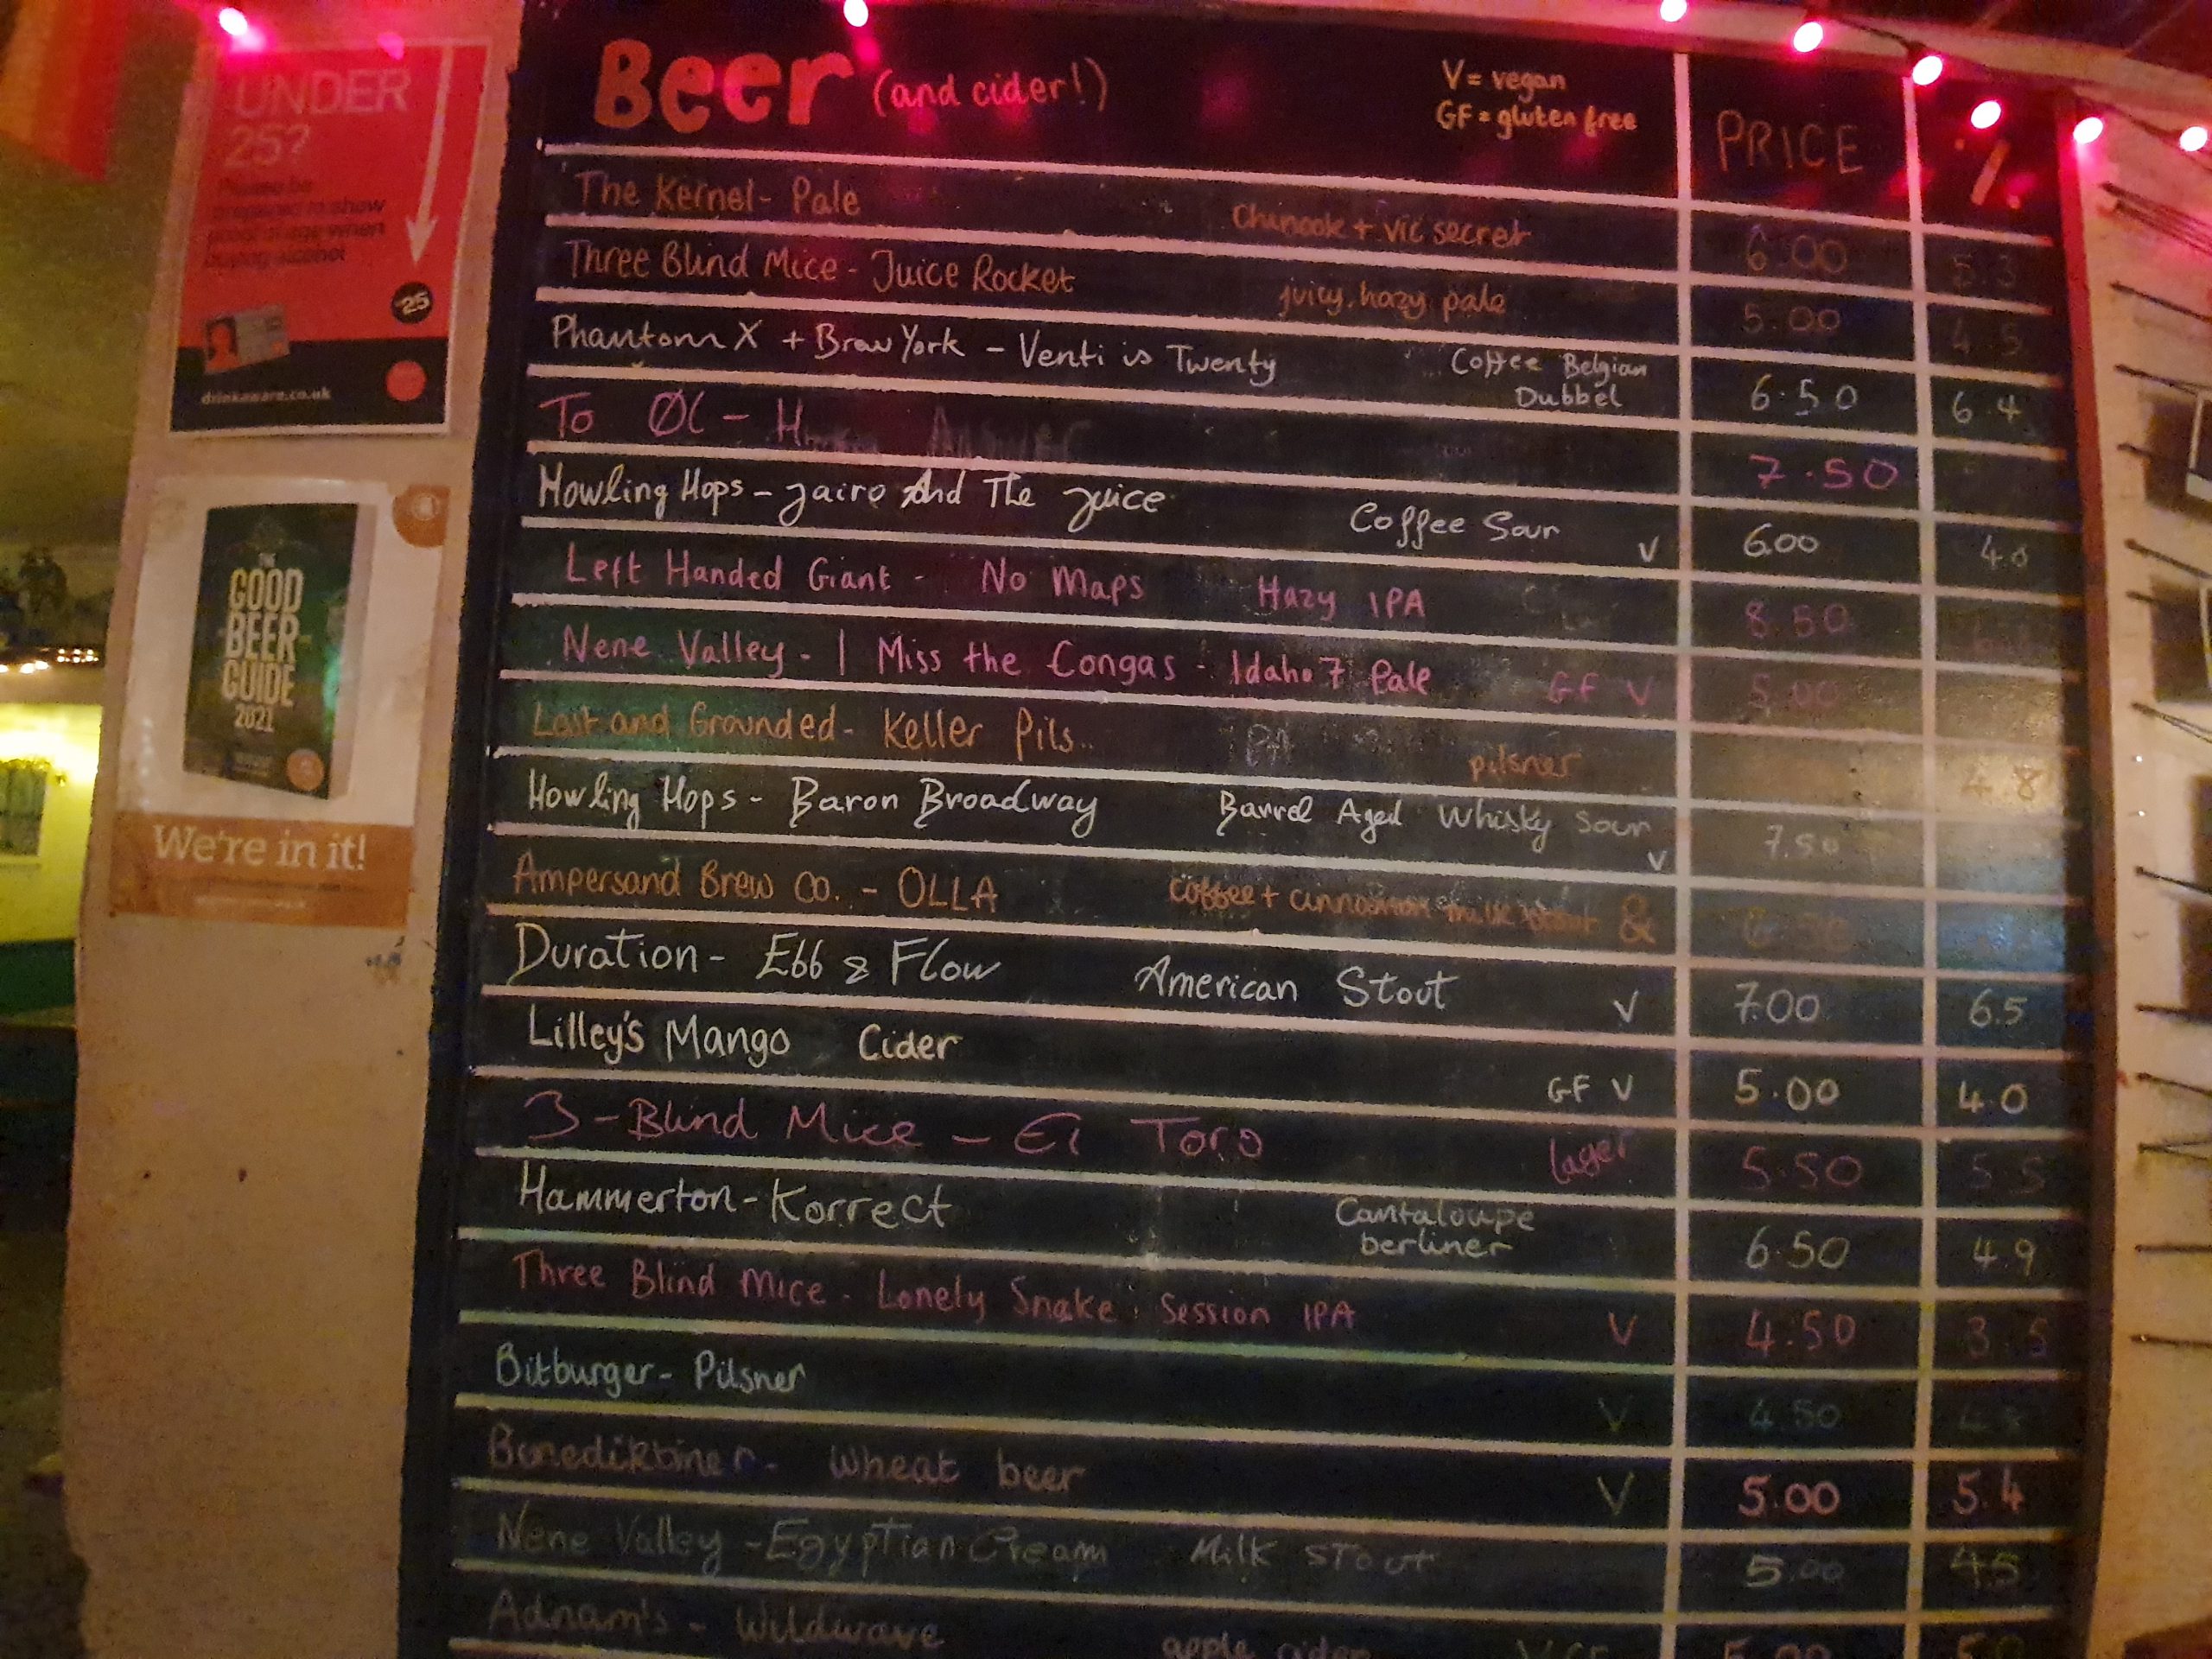 UNDER
25?
Please be
prepared to show
proof of age when
buying alcohol
25
drinkaware.co.uk
THE
GOOD
BEER
GUIDE
2021
We're in it!
Beer (and cider!)
V = vegan
GF = gluten free
PRICE %
The Kernel - Pale Chinook + vic secret 6.00 5.3
Three Blind Mice - Juice Rocket juicy, hazy pale 5.00 4.5
Phantom X + Brew York - Venti is Twenty Coffee Belgian Dubbel 6.50 6.4
To ØL - H 7.50
Howling Hops - Jairo And The Juice Coffee Sour V 6.00 4.0
Left Handed Giant - No Maps Hazy IPA 8.50
Nene Valley - I Miss the Congas - Idaho 7 Pale GF V 5.00
Lost and Grounded - Keller Pils pilsner 4.8
Howling Hops - Baron Broadway Barrel Aged Whisky Sour V 7.50
Ampersand Brew Co. - OLLA Coffee + cinnamon milk stout &
Duration - Ebb & Flow American Stout V 7.00 6.5
Lilley's Mango Cider GF V 5.00 4.0
3-Blind Mice - El Toro lager 5.50 5.5
Hammerton - Korrect Cantaloupe berliner 6.50 4.9
Three Blind Mice - Lonely Snake Session IPA V 4.50 3.5
Bitburger - Pilsner V 4.50 4.8
Benediktiner - Wheat beer V 5.00 5.4
Nene Valley - Egyptian Cream Milk Stout 5.00 4.5
Adnam's - Wildwave apple cider V GF 5.00 5.0